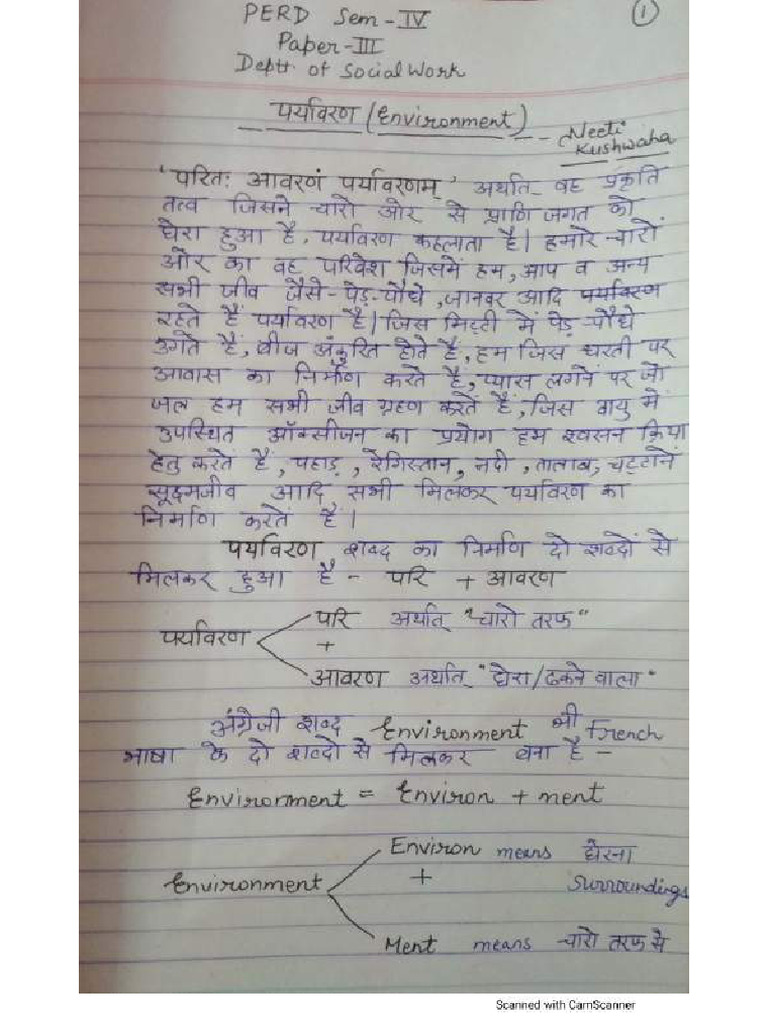 PERD Sem - IV
①
Paper - III
Deptt of Social Work
पर्यावरण (Environment)
- Neeti Kushwaha
'परितः आवरणं पर्यावरणम्' अर्थात् वह प्रकृति
तत्व जिसने चारो ओर से प्राणि जगत को
घेरा हुआ है, पर्यावरण कहलाता है। हमारे चारों
ओर का वह परिवेश जिसमें हम, आप व अन्य
सभी जीव जैसे-पेड़-पौधे, जानवर आदि पर्यावरण
रहते हैं पर्यावरण है। जिस मिट्टी में पेड़-पौधे
उगते हैं, बीज अंकुरित होते है, हम जिस धरती पर
आवास का निर्माण करते है, प्यास लगने पर जो
जल हम सभी जीव ग्रहण करते हैं, जिस वायु में
उपस्थित ऑक्सीजन का प्रयोग हम श्वसन क्रिया
हेतु करते हैं, पहाड़, रेगिस्तान, नदी, तालाब, चट्टानें
सूक्ष्मजीव आदि सभी मिलकर पर्यावरण का
निर्माण करते है।
पर्यावरण शब्द का निर्माण दो शब्दों से
मिलकर हुआ है - परि + आवरण
परि अर्थात् "चारो तरफ"
पर्यावरण +
आवरण अर्थात् "घेरा/ढकने वाला"
अंग्रेजी शब्द Environment भी French
भाषा के दो शब्दो से मिलकर बना है -
Environment = Environ + ment
Environ means घेरना
Environment + Surroundings
Ment means चारो तरफ से
Scanned with CamScanner